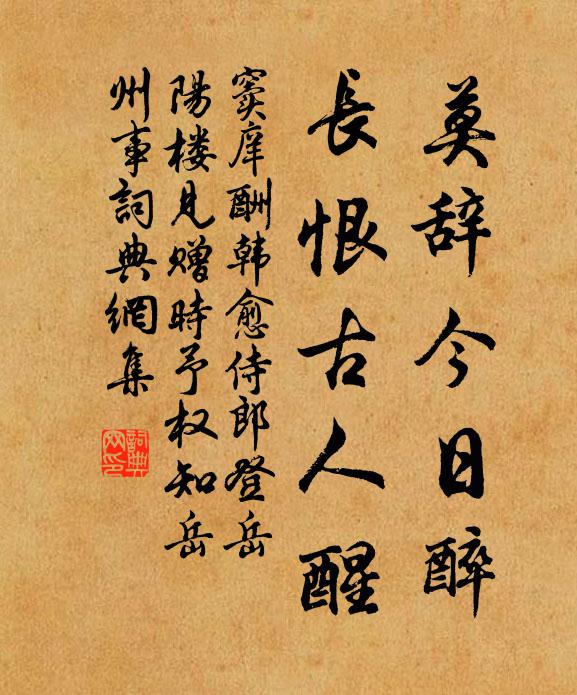 莫辞今日醉
長恨古人醒
窦庠酬韩愈侍郎登岳
陽楼見赠時予权知岳
州事詞典網集
詞典网印